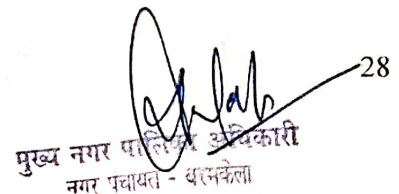 28
मुख्य नगर पालिका अधिकारी
नगर पंचायत - बरमकेला